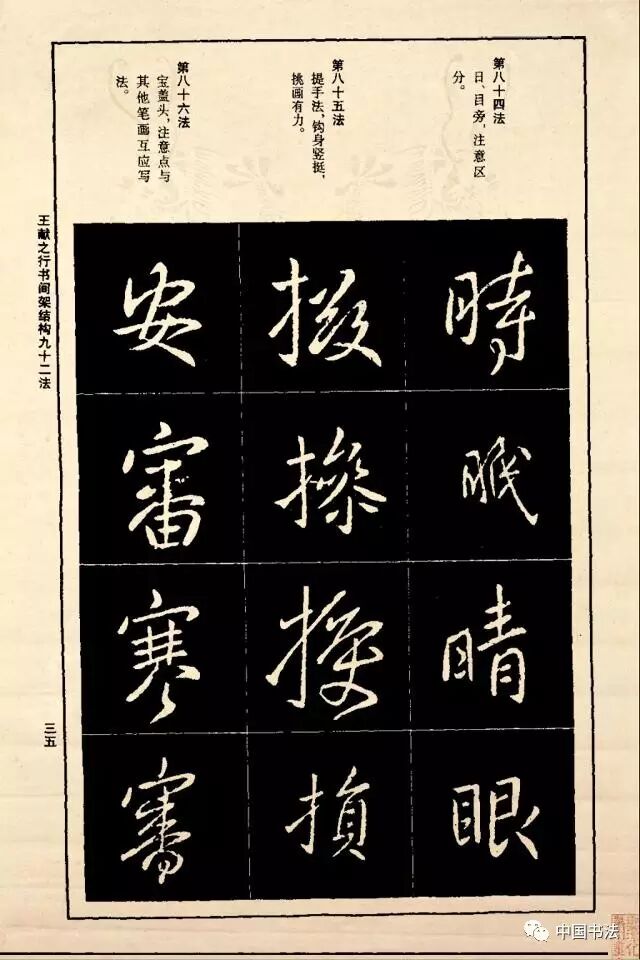 第八十四法
日、目旁，注意区
分。
第八十五法
提手法，钩身竖挺，
挑画有力。
第八十六法
宝盖头，注意点与
其他笔画互应写
法。
時
晴
眼
损
安
審
寒
審
王献之行书间架结构九十二法
三五
中国书法